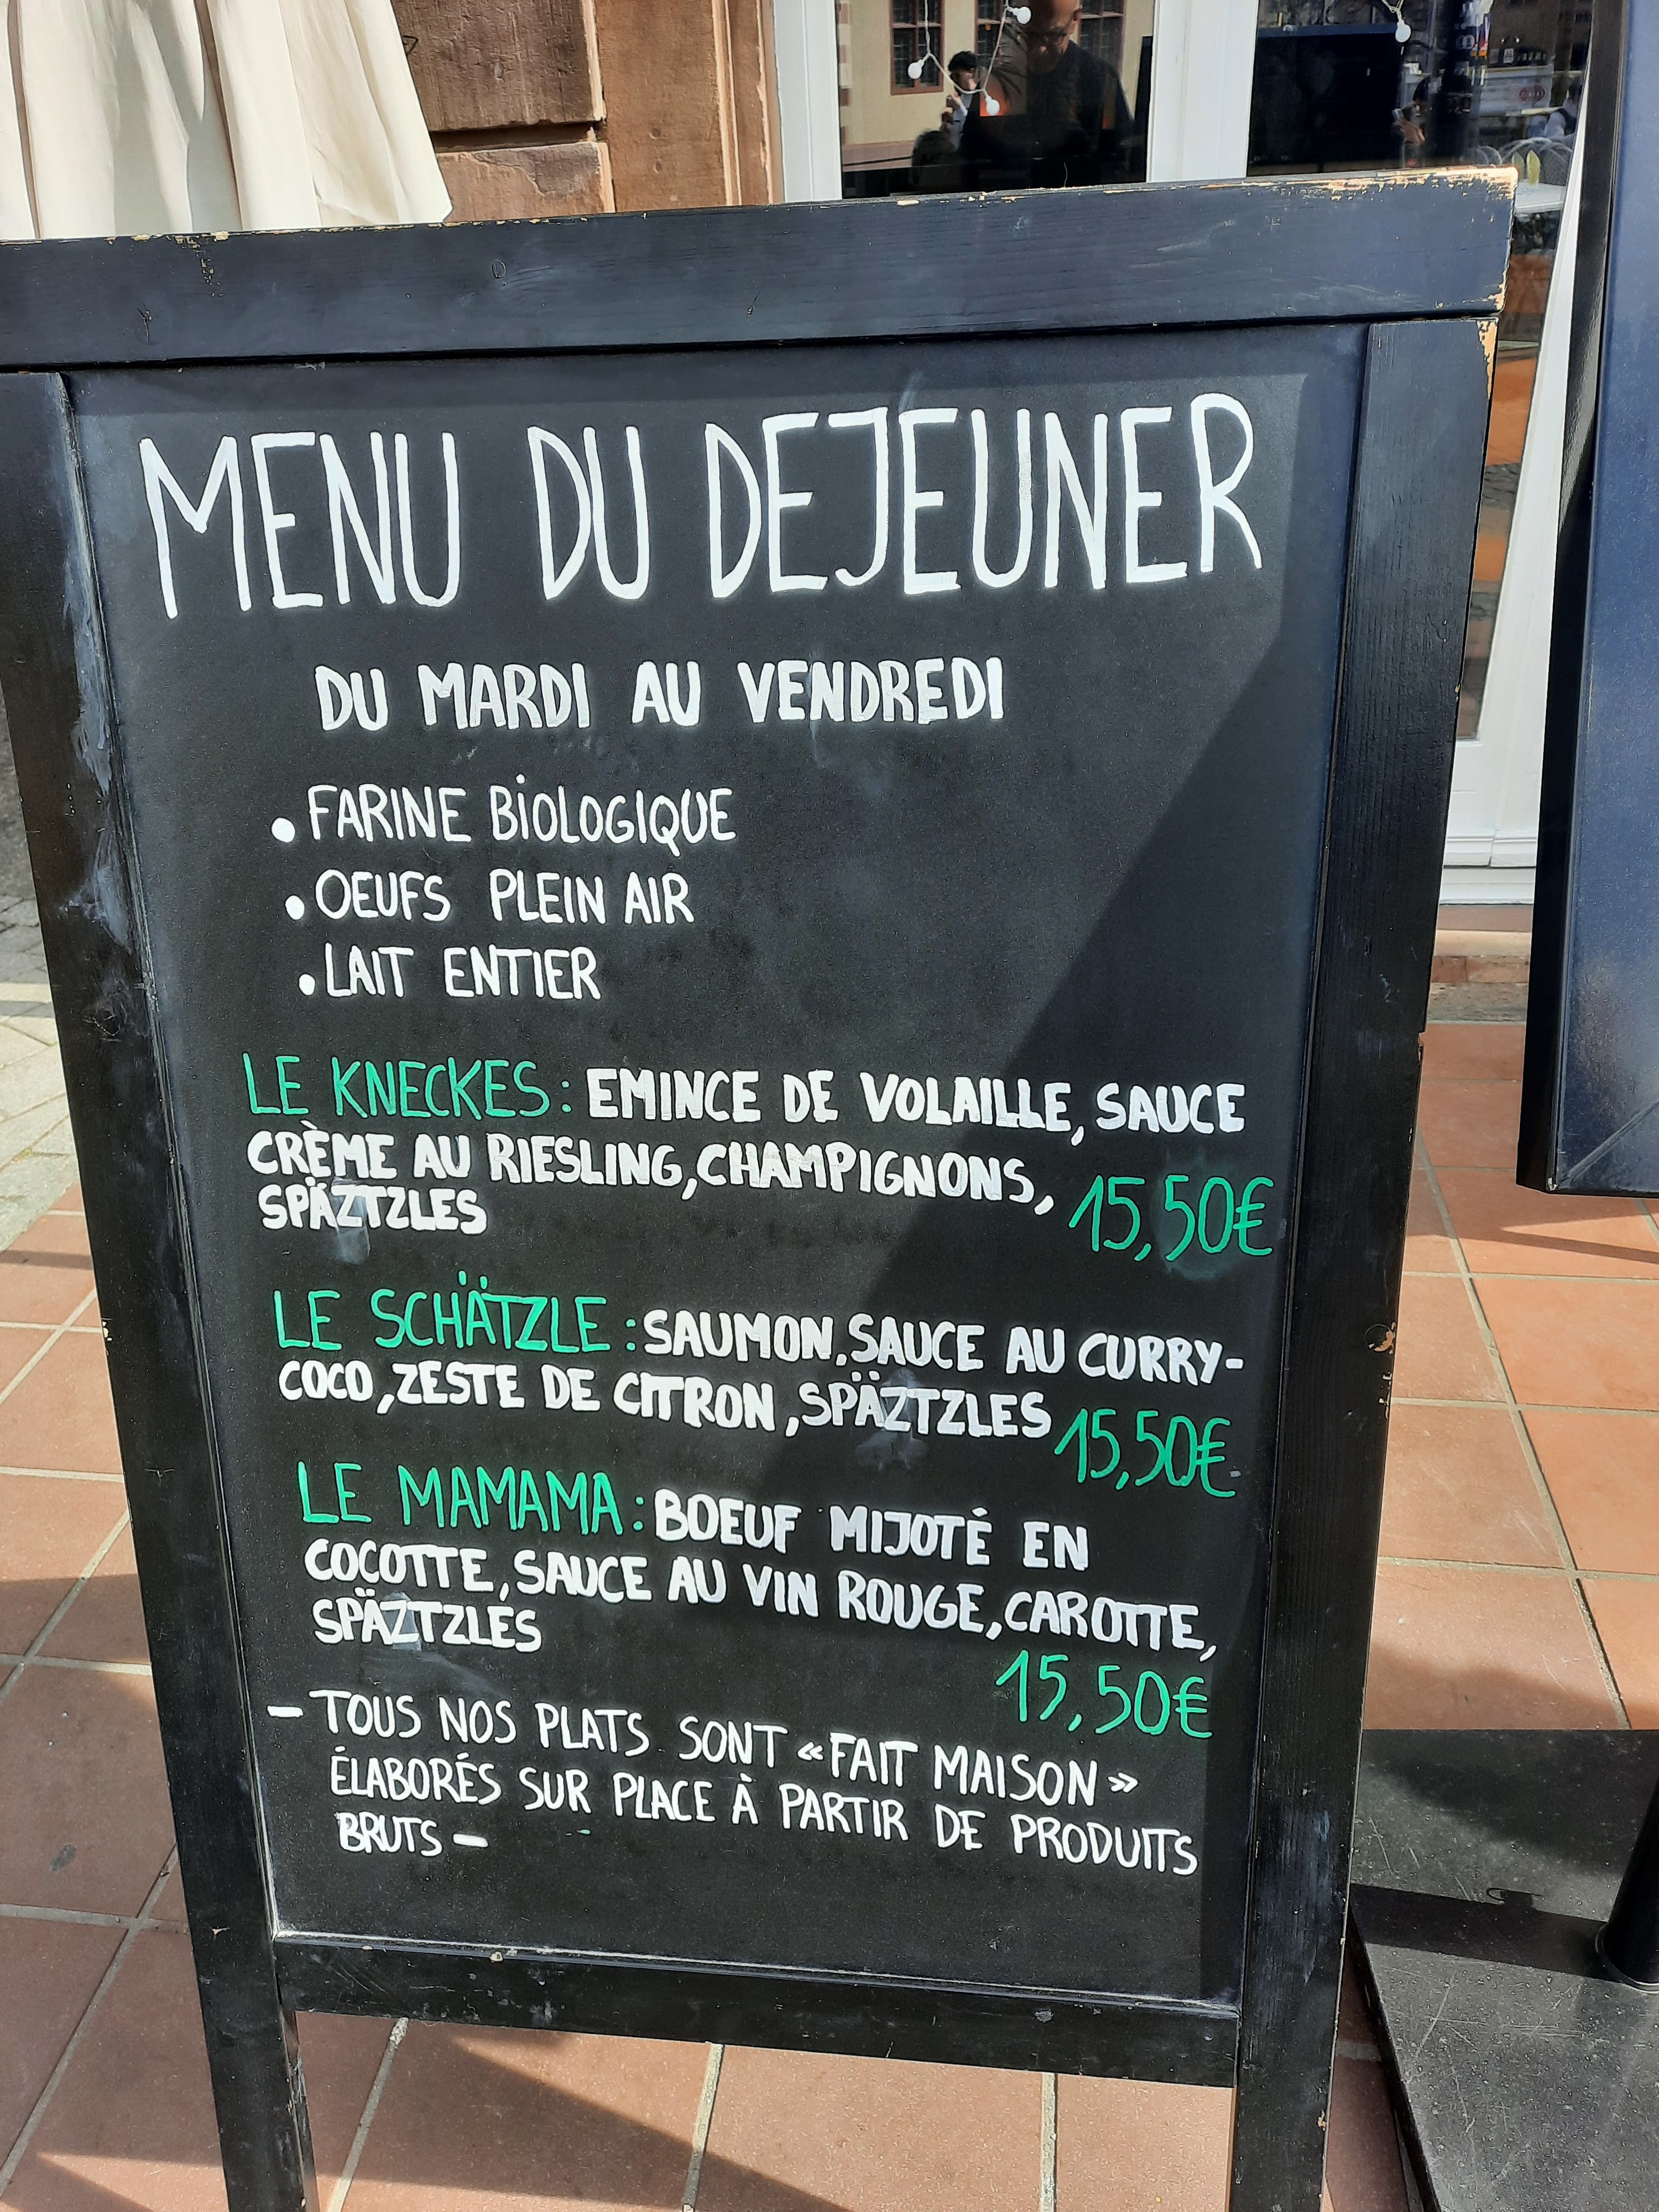 MENU DU DEJEUNER
DU MARDI AU VENDREDI
• FARINE BIOLOGIQUE
• OEUFS PLEIN AIR
• LAIT ENTIER
LE KNECKES : EMINCE DE VOLAILLE, SAUCE
CRÈME AU RIESLING, CHAMPIGNONS,
SPÄZTZLES 15,50€
LE SCHÄTZLE : SAUMON, SAUCE AU CURRY-
COCO, ZESTE DE CITRON, SPÄZTZLES
15,50€
LE MAMAMA : BOEUF MIJOTÉ EN
COCOTTE, SAUCE AU VIN ROUGE, CAROTTE,
SPÄZTZLES
15,50€
— TOUS NOS PLATS SONT « FAIT MAISON »
ÉLABORÉS SUR PLACE À PARTIR DE PRODUITS
BRUTS —